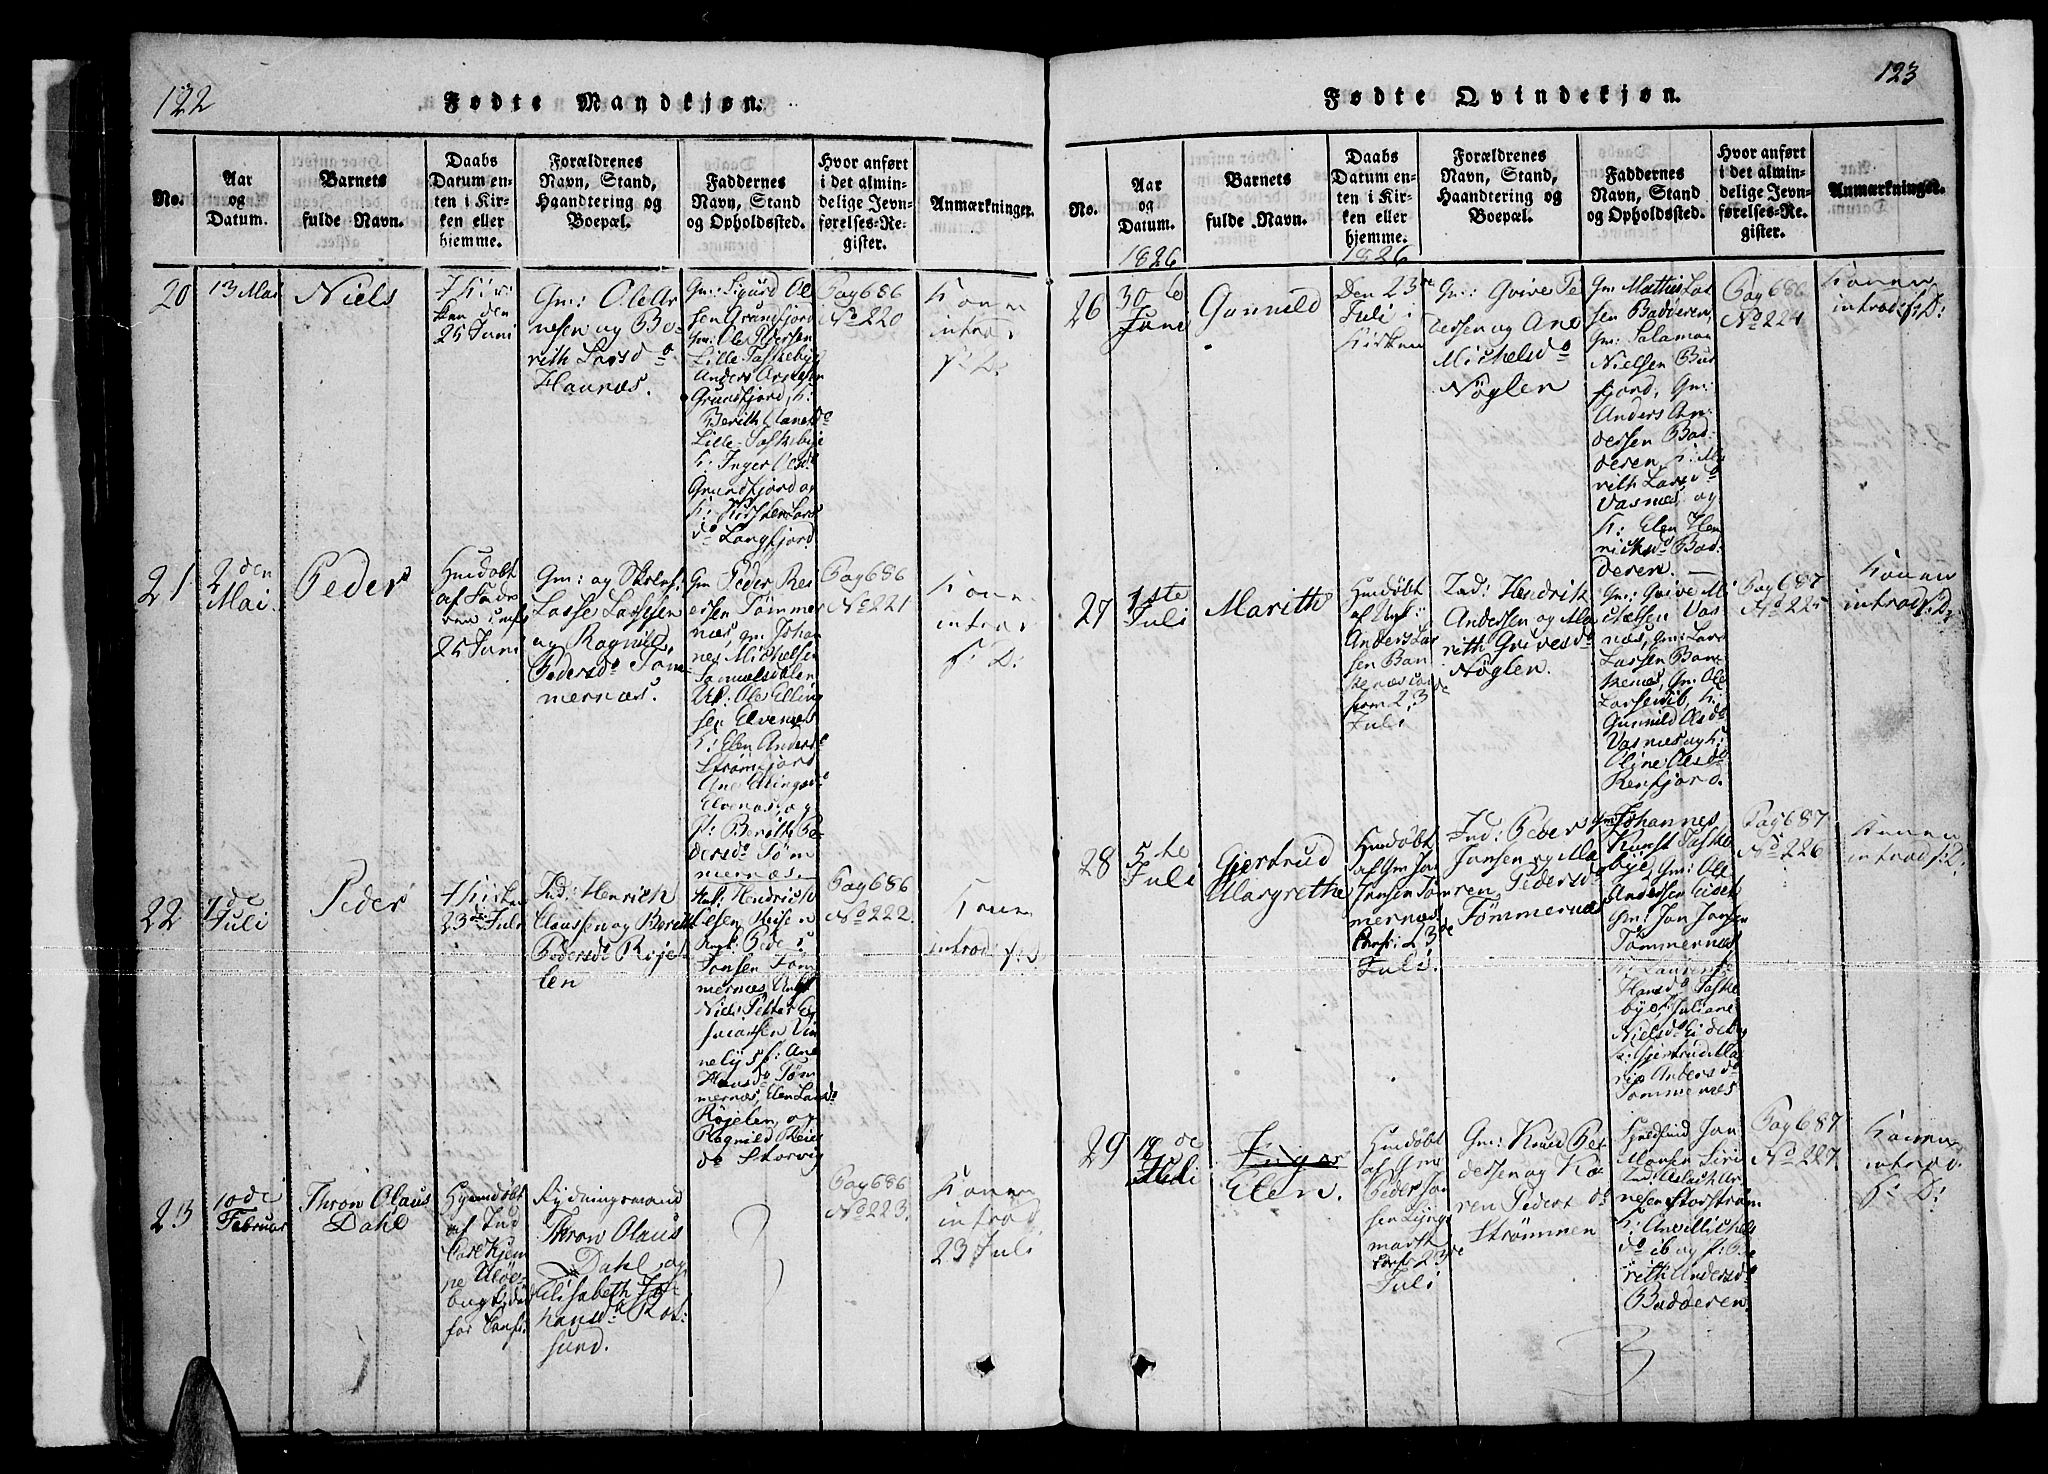 122
Fødte Mandkjøn.
No.
Aar
og
Datum.
Barnets
fulde Navn.
Daabs
Datum en-
ten i Kir-
ken eller
hjemme.
Forældrenes
Navn, Stand,
Haandtering og
Boepæl.
Faddernes
Navn, Stand
og Opholdssted.
Hvor anført
i det almin-
delige Jevn-
førelses-Re-
gister.
Anmærkninger.
20
13 Mai
Niels
I Kir-
ken den
25 Juni
Gm: Ole Ar
nesen og Be-
reth Larsdo
Haunæs.
Gm: Sigurd Ol
sen Grundfjord
Gm: Ole Pedersen
Lille Taskebye
Anders Arnesen
Grundfjord, K:
Berith
Lille Taskebye
K: Inger Olsdo
Grundfjord og
K: Kirsten Lars
do Langfjord
Pag 686
No 220
Konen
introd:
s: D:
21
2den
Mai
Peder
Hiemdøbt
af Fade
ren confr
25 Juni
Gm: og Skolh:
Lasse Lassesen
og Ragnild
Pedersdo Tøm
mernæs.
Gm Peder Re
ersen Tømmer
næs, gm: Johan
nes Michelsen
Samuelsdalen
Uk: Ole Elling
sen Elvenæs
K: Elen Andersdo
Strømfjord
Ane Ellingsdo
Elvenæs, og
P: Berith Pe
dersdo Tøm
mernæs.
Pag 686
No 221
Konen
introd:
s: D:
22
1de
Juli
Peder
I Kirken
23de Juli
Ind: Henrich
Clausen og Berith
Pedersdo Røje
len
Hendrich
Olsen
Peder
Jansen Tøm
mernæs, Ungk
Niels Petter
P: Ane
Hansdo Tøm
mernæs, Elen Larsdo
Røjelen, og
Ragnild
do Storvig
Pag 686
No 222
Konen
introd: s: D:
23
10de
Februar
Thron Olaus
Dahl
Hjemdøbt
af Ind
Carl Kjem
pe Uløe-
bugt, død
før Conf:
Rydningsmand
Thron Olaus
Dahl og
Elisabeth Jo
hansdo Rot
sund.
Pag 686
No 223
Konen
introd
23 Juli
123
Fødte Qvindekjøn.
No.
Aar
og
Datum.
1826
Barnets
fulde Navn.
Daabs
Datum en-
ten i Kir-
ken eller
hjemme.
1826
Forældrenes
Navn, Stand,
Haandtering og
Boepæl.
Faddernes
Navn, Stand
og Opholdssted.
Hvor anført
i det almin-
delige Jevn-
førelses-Re-
gister.
Anmærkninger.
26
30te
Juni
Gunnild
Den 23de
Juli i
Kirken
Gm: Qvive Pe
dersen og Ane
Michelsdo
Nøglen
Gm Mathis Las
sen Badderen,
Gm: Salamon
Nielsen Bur
fjord, Gm:
Anders An-
dersen Bad-
deren, K: Ma
rith Larsdo
Vasnæs og
K: Elen Hen
richsdo Bad-
deren.
Pag 686
No 224
Konen
introd: s: D:
27
1ste
Juli
Marith
Hiemdøbt
af Ungk:
Anders Las
sen Ban
kenæs con
firm 23de
Juli
Ind: Hendrik
Andersen og Ma
rith Qvivesdo
Nøglen.
Gm: Qvive Mi
chelsen Vas
næs, Gm: Lars
Larsen Ban-
kenæs, Gm: Ole
Larsen ib, K:
Gunnild Olsdo
Vasnæs og K:
Oline Olsdo
Reisfjord.
Pag 687
No 225
Konen
introd s: D:
28
5te
Juli
Gjertrud
Margrethe
Hiemdøbt
af Gm Jan
Jansen Tøm
mernæs,
Conf: 23de
Juli.
Ind: Peder
Jansen og Ma
ren Pedersdo
Tømmernæs
Gm Johannes
Kunst Taske
bye, Gm: Ole
Andersen Eidet
Gm: Jan Jansen
Tømmernæs
K: Lauren
Hansdo Taske
bye, P: Juliane
Nielsdo Eidet og
P: Gjertrud Ma
rie Andersdo
Tømmernæs
Pag 687
No 226
Konen
introd s: D:
29
18de
Juli
Inger
Elen.
Hiemdøbt
af Gm
Peder Jan
sen Lyng
mark
Conf 23de
Juli
Gm: Knud Pe
dersen og Ka
ren Peders do
Strømmen
Jan
Monsen Siri
Ind, Aslach Ar
nesen Storstrøm
do ib og P: Be
reth Andersdo
Badderen
Pag 687
No 227
Konen
introd.
s: D: